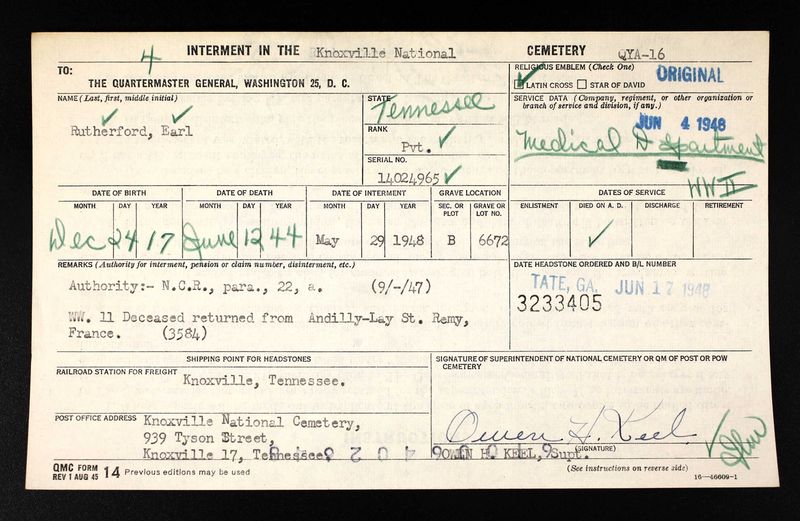 4 INTERMENT IN THE Knoxville National CEMETERY QYA-16
TO:
THE QUARTERMASTER GENERAL, WASHINGTON 25, D. C.
RELIGIOUS EMBLEM (Check One)
LATIN CROSS STAR OF DAVID
ORIGINAL
NAME (Last, first, middle initial)
Rutherford, Earl
STATE
Tennessee
RANK
Pvt.
SERIAL NO.
14024965
SERVICE DATA (Company, regiment, or other organization or branch of service and division, if any.)
JUN 4 1948
Medical Department
WW II
DATE OF BIRTH DATE OF DEATH DATE OF INTERMENT GRAVE LOCATION DATES OF SERVICE
MONTH DAY YEAR MONTH DAY YEAR MONTH DAY YEAR SEC. OR PLOT GRAVE OR LOT NO. ENLISTMENT DIED ON A. D. DISCHARGE RETIREMENT
Dec 24 17 June 12 44 May 29 1948 B 6672
REMARKS (Authority for interment, pension or claim number, disinterment, etc.)
Authority:- N.C.R., para., 22, a. (9/-/47)
WW. 11 Deceased returned from Andilly-Lay St. Remy,
France. (3584)
DATE HEADSTONE ORDERED AND B/L NUMBER
TATE, GA. JUN 17 1948
3233405
SHIPPING POINT FOR HEADSTONES
RAILROAD STATION FOR FREIGHT
Knoxville, Tennessee.
POST OFFICE ADDRESS
Knoxville National Cemetery,
939 Tyson Street,
Knoxville 17, Tennessee
SIGNATURE OF SUPERINTENDENT OF NATIONAL CEMETERY OR QM OF POST OR POW CEMETERY
Owen H. Keel
(SIGNATURE)
OWEN H. KEEL, Supt.
(See instructions on reverse side)
QMC FORM 14 Previous editions may be used
REV 1 AUG 45
16—46609-1